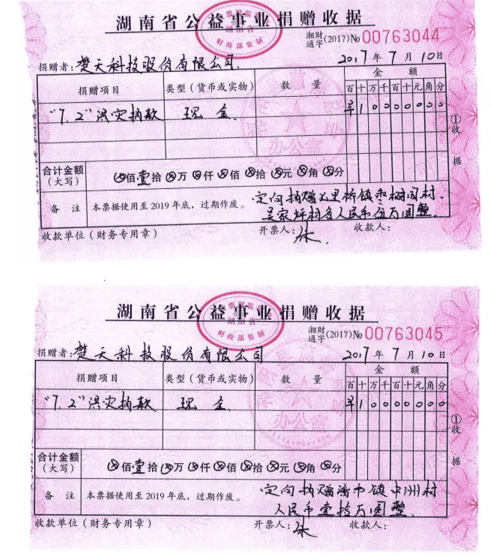 湖南省公益事业捐赠收据
湘财通字(2017)№ 00763044
捐赠者：楚天科技股份有限公司 2017年7月10日
捐赠项目 类型（货币或实物） 数量 金额
百十万千百十元角分
"7.2"洪灾捐款 现金 10000000
合计金额（大写） 佰壹拾万仟佰拾元角分
备注 本票据使用至2019年底，过期作废。
定向捐赠 村
人民币 万圆整
收款单位（财务专用章） 开票人：
①收据
湖南省公益事业捐赠收据
湘财通字(2017)№ 00763045
捐赠者：楚天科技股份有限公司 2017年7月10日
捐赠项目 类型（货币或实物） 数量 金额
百十万千百十元角分
"7.2"洪灾捐款 现金 10000000
合计金额（大写） 佰壹拾万仟佰拾元角分
备注 本票据使用至2019年底，过期作废。
定向捐赠 镇 村
人民币壹拾万圆整
收款单位（财务专用章） 开票人：
①收据